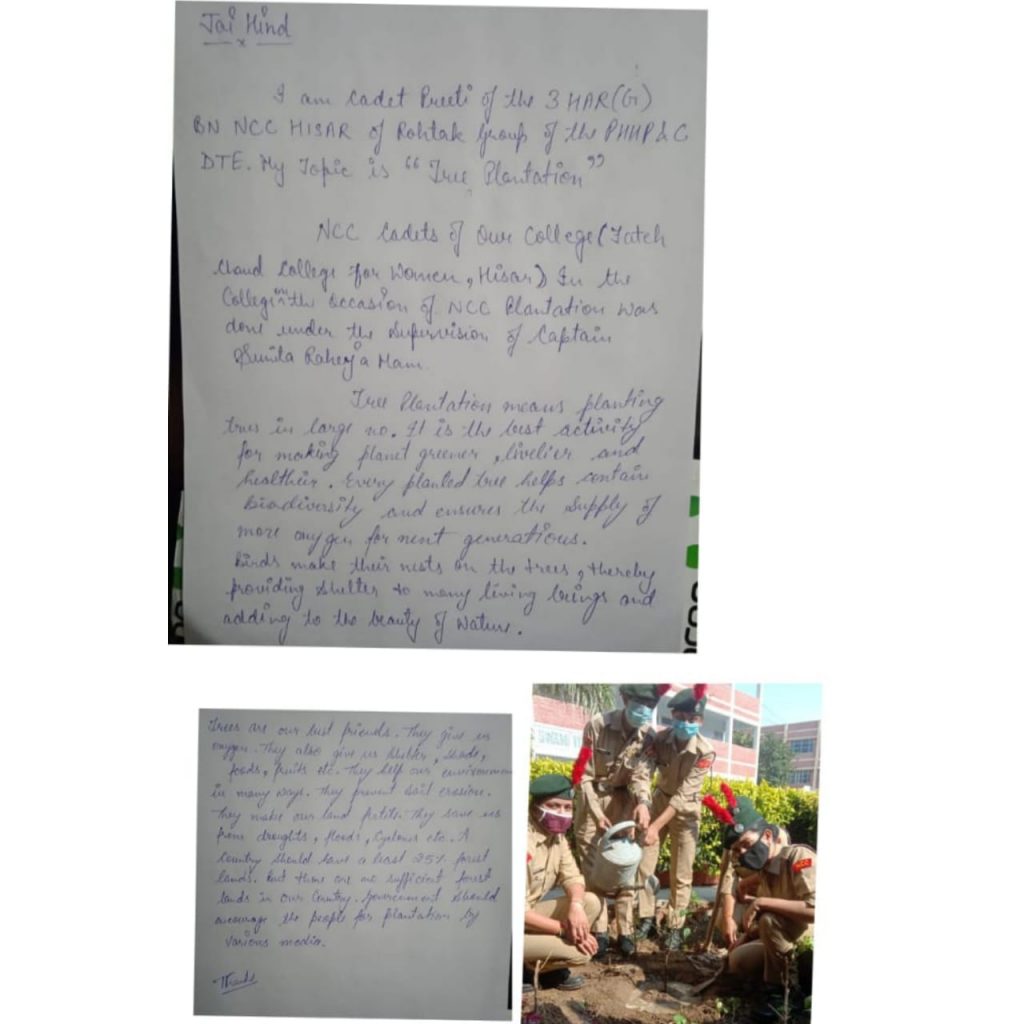 Jai Hind
I am Cadet Preeti of the 3 HAR(G)
BN NCC HISAR of Rohtak Group of the PHHP&C
DTE. My Topic is “Tree Plantation”
NCC Cadets of Our College (Fateh
Chand College for Women, Hisar) In the
College on the occasion of NCC Plantation was
done under the supervision of Captain
Sunita Raheja Mam.
Tree Plantation means planting
trees in large no. It is the best activity
for making planet greener, livelier and
healthier. Every planted tree helps contain
biodiversity and ensures the supply of
more oxygen for next generations.
Birds make their nests on the trees, thereby
providing shelter to many living beings and
adding to the beauty of Nature.
Trees are our best friends. They give us
oxygen. They also give us shelter, shade,
foods, fruits etc. They help our environment
in many ways. They prevent soil erosion.
They make our land fertile. They save us
from droughts, floods, cyclones etc. A
Country should have a least 25% forest
lands. But there are no sufficient forest
lands in our Country. Government should
encourage the people for plantation by
various media.
Thanks